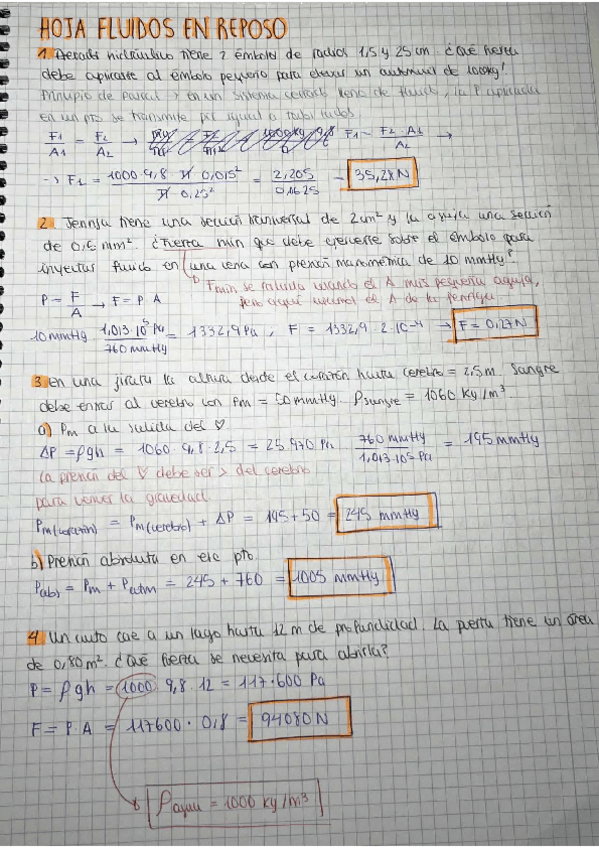 HOJA FLUIDOS EN REPOSO
1. hidráulico tiene 2 émbolos de radios 1,5 y 25 cm. ¿Qué fuerza
debe aplicarse al émbolo pequeño para elevar un automóvil de 1000kg?
Principio de Pascal → en un sistema cerrado lleno de fluido, la P aplicada
en un pto se transmite por igual a todos lados.
F1/A1 = F2/A2 → F1 = F2 · A1 / A2 →
→ F1 = 1000 · 9,8 · π · 0,015² / π · 0,25² = 2,205 / = 35,28 N
2. Jeringa tiene una sección transversal de 2cm² y la aguja una sección
de mm². ¿Fuerza min que debe ejercerse sobre el émbolo para
inyectar fluido en una vena con presión manométrica de 10 mmHg?
Fmin se calcula usando el A más pequeña aguja,
pero aquí usamos el A de la jeringa
P = F/A → F = P · A
10 mmHg · 1,013 · 10⁵ Pa / 760 mmHg = 1332,9 Pa, F = 1332,9 · 2 · 10⁻⁴ → F = 0,27N
3 en una jirafa la altura desde el corazón hasta cerebro = 2,5m. Sangre
debe entrar al cerebro con Pm = 50 mmHg. ρsangre = 1060 kg/m³
a) Pm a la salida del ♡
ΔP = ρgh = 1060 · 9,8 · 2,5 = 25 970 Pa · 760 mmHg / 1,013 · 10⁵ Pa = 195 mmHg
La presión del ♡ debe ser > del cerebro
para vencer la gravedad.
Pm(corazón) = Pm(cerebro) + ΔP = 195 + 50 = 245 mmHg
b) Presión absoluta en ese pto.
Pabs = Pm + Patm = 245 + 760 = 1005 mmHg
4. Un auto cae a un lago hasta 12 m de profundidad. La puerta tiene un área
de 0,80 m². ¿Qué fuerza se necesita para abrirla?
P = ρgh = 1000 · 9,8 · 12 = 117.600 Pa
F = P · A = 117600 · 0,8 = 94080 N
ρagua = 1000 kg/m³